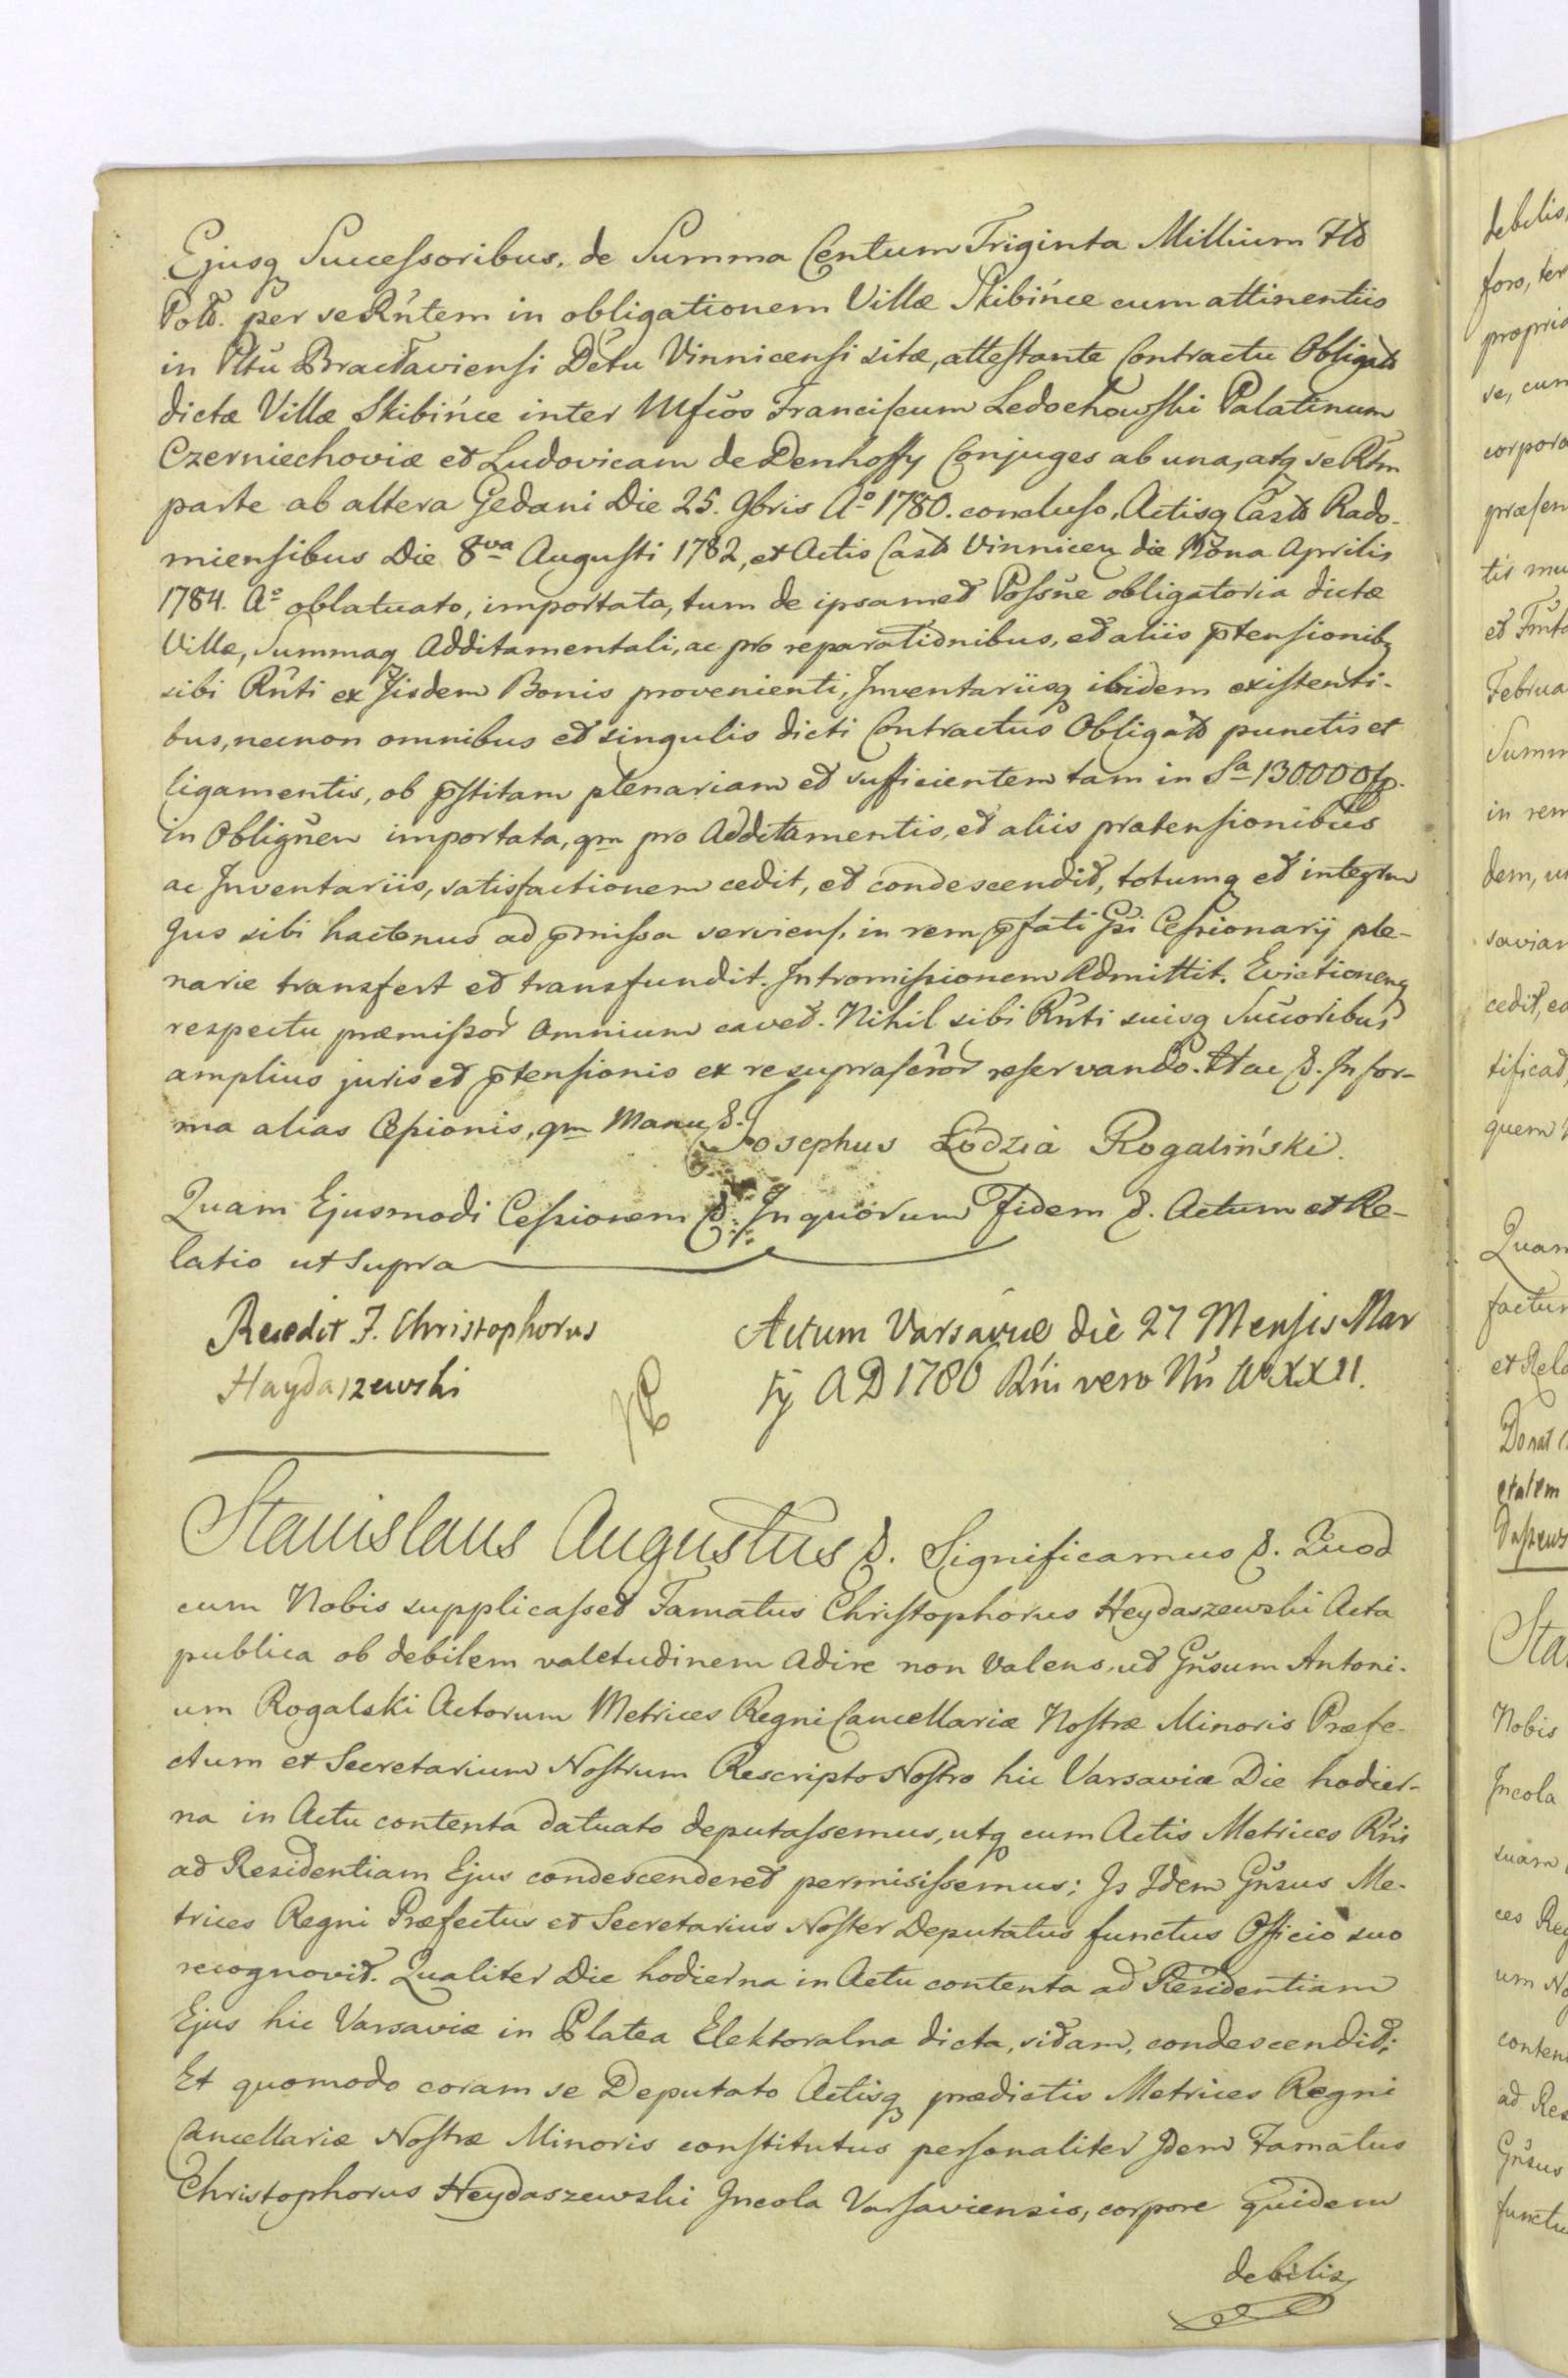 Ejusq Successoribus, de Summa Centum Triginta Millium Flo
Pold. per se Rntem in obligationem Villæ Skibińce cum attinentiis
in Pltu Bracłaviensi Dctu Vinnicensi sitæ, attestante Contractu Obligato
dictæ Villæ Skibińce inter Mfcos Franciscum Ledochowski Palatinum
Czerniechoviæ et Ludovicam de Denhoffy Conjuges ab una, atq se Rtm
parte ab altera Gedani Die 25. 9bris Aº 1780. concluso, Actisq Casto Rado-
miensibus Die 8va Augusti 1782, et Actis Casto Vinnicen die Nona Aprilis
1784. Aº oblatuato, importata, tum de ipsamet Possne obligatoria dictæ
Villæ, Summaq Additamentali, ac pro reparationibus, et aliis ptensionibq
sibi Rnti ex Iisdem Bonis provenienti, Inventariisq ibidem existenti-
bus, necnon omnibus et singulis dicti Contractus Obligato punctis et
ligamentis, ob pstitam plenariam et sufficientem tam in Sa 130000 fp.
in Oblignen importata, qm pro Additamentis, et aliis prætensionibus
ac Inventariis, satisfactionem cedit, et condescendit, totumq et integrum
Jus sibi hactenus ad pmissa serviens, in rem pfati Gsi Cessionarij ple-
narie transfert et transfundit. Intromissionem Admittit. Evictionemq
respectu præmissor Omnium cavet. Nihil sibi Rnti suisq Succoribus
amplius juris et ptensionis ex re suprascror reservando. Hac &. In for-
ma alias Cessionis, qm Manu &. Josephus Łodzia Rogaliński.
Quam Ejusmodi Cessionem &. In quorum Fidem &. Actum et Re-
latio ut supra
Recedit F. Christophorus
Haydaszewski
Actum Varsaviæ diè 27 Mensis Mar
tij A D 1786 Rni vero Nri Aº XXII.
Stanislaus Augustus &. Significamus &. Quod
cum Nobis supplicasset Famatus Christophorus Heydaszewski Acta
publica ob debilem valetudinem Adire non Valens, ut Gnsum Antoni-
um Rogalski Actorum Metrices Regni Cancellariæ Nostræ Minoris Præfe-
ctum et Secretarium Nostrum Rescripto Nostro hic Varsaviæ Die hodier-
na in Actu contenta datuato deputassemus, utq cum Actis Metrices Rni
ad Residentiam Ejus condescenderet permisissemus; Is Idem Gnsus Me-
trices Regni Præfectus et Secretarius Noster Deputatus functus Officio suo
recognovit. Qualiter Die hodierna in Actu contenta ad Residentiam
Ejus hic Varsaviæ in Platea Elektoralna dicta, sitam, condescendit;
Et quomodo coram se Deputato Actisq prædictis Metrices Regni
Cancellariæ Nostræ Minoris constitutus personaliter Idem Famatus
Christophorus Heydaszewski Incola Varsaviensis, corpore quidem
debilis,